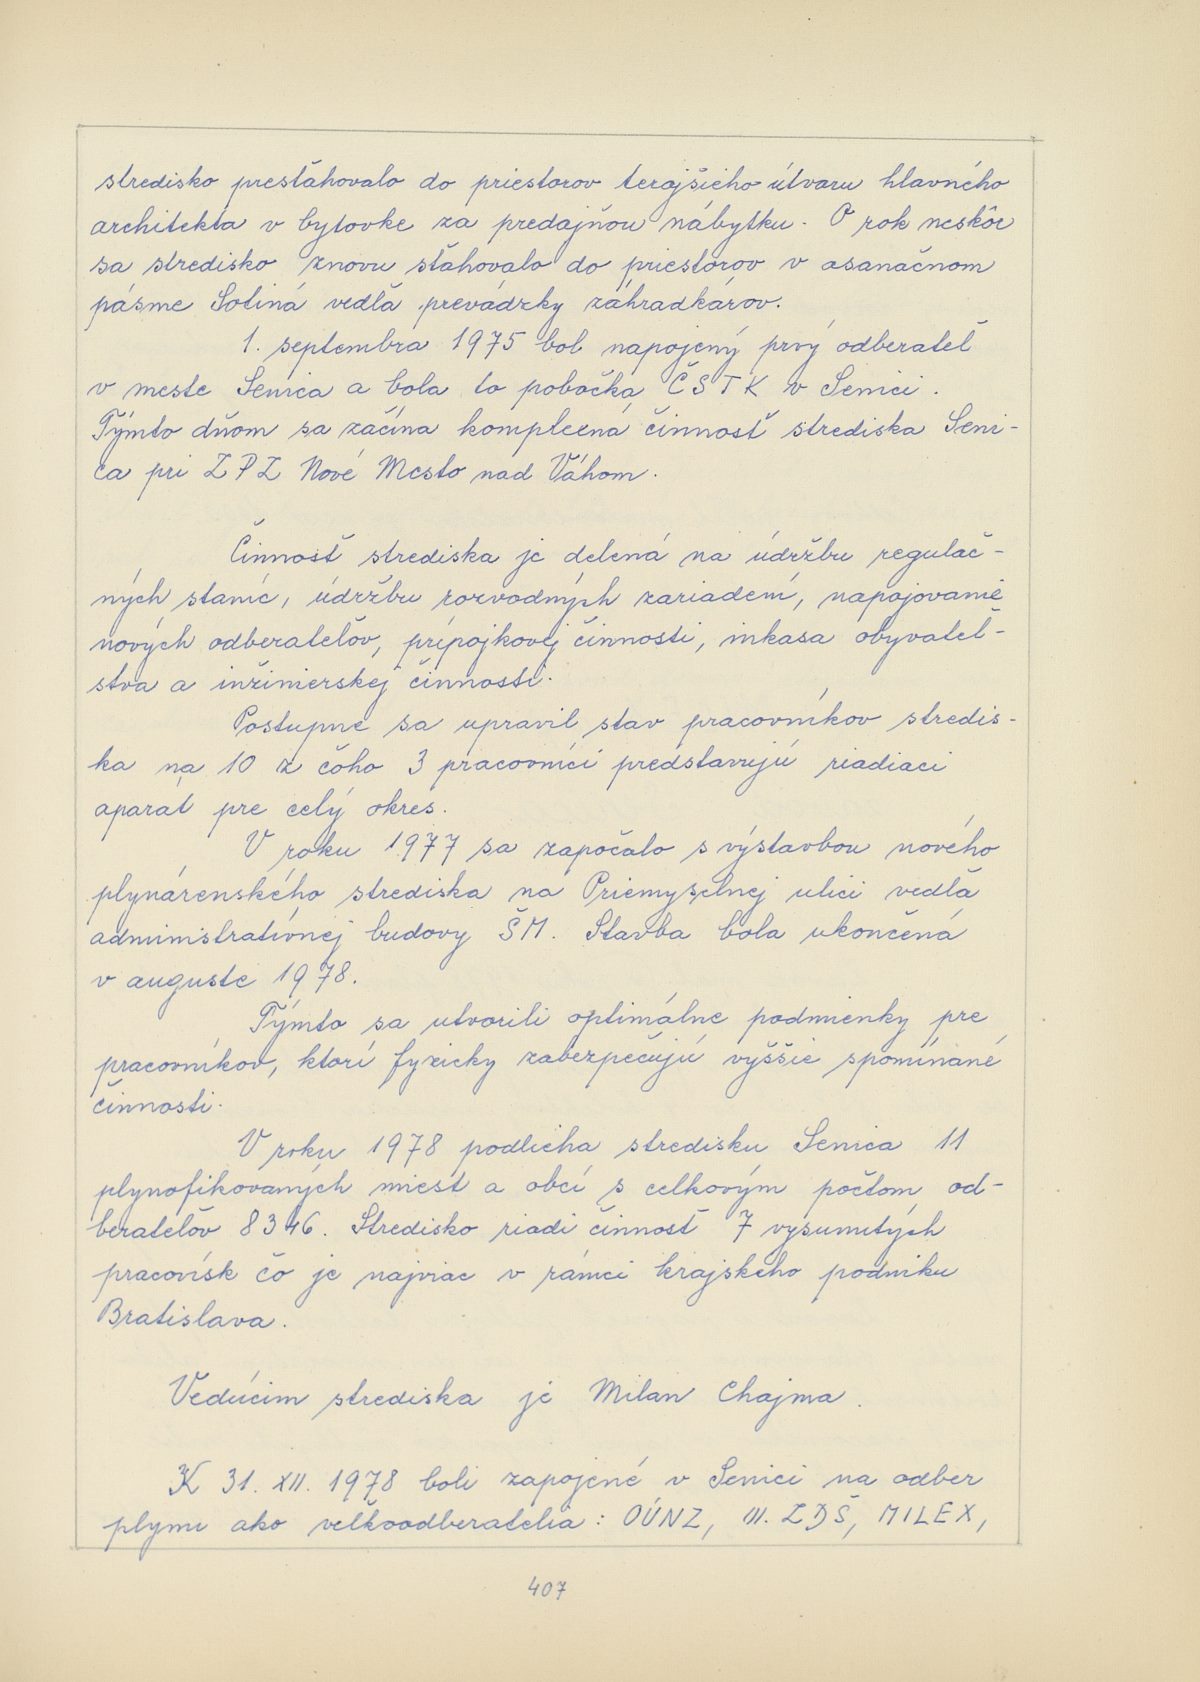 stredisko presťahovalo do priestorov terajšieho útvaru hlavného
architekta v bytovke za predajňou nábytku. O rok neskôr
sa stredisko znovu sťahovalo do priestorov v asanačnom
pásme Sotiná vedľa prevádzky záhradkárov.
1. septembra 1975 bol napojený prvý odberateľ
v meste Senica a bola to pobočka ČSTK v Senici.
Týmto dňom sa začína komplexná činnosť strediska Seni-
ca pri ZPZ Nové Mesto nad Váhom.
Činnosť strediska je delená na údržbu regulač-
ných staníc, údržbu rozvodných zariadení, napojovanie
nových odberateľov, prípojkovej činnosti, inkasa obyvateľ-
stva a inžinierskej činnosti.
Postupne sa upravil stav pracovníkov stredis-
ka na 10 z čoho 3 pracovníci predstavujú riadiaci
aparát pre celý okres.
V roku 1977 sa započalo s výstavbou nového
plynárenského strediska na Priemyselnej ulici vedľa
administratívnej budovy ŠM. Stavba bola ukončená
v auguste 1978.
Týmto sa utvorili optimálne podmienky pre
pracovníkov, ktorí fyzicky zabezpečujú vyššie spomínané
činnosti.
V roku 1978 podlieha stredisku Senica 11
plynofikovaných miest a obcí s celkovým počtom od-
berateľov 8346. Stredisko riadi činnosť 7 vysunutých
pracovísk čo je najviac v rámci krajského podniku
Bratislava.
Vedúcim strediska je Milan Chajma.
K 31. XII. 1978 boli zapojené v Senici na odber
plynu ako veľkoodberatelia: OÚNZ, III. ZDŠ, MILEX,
407